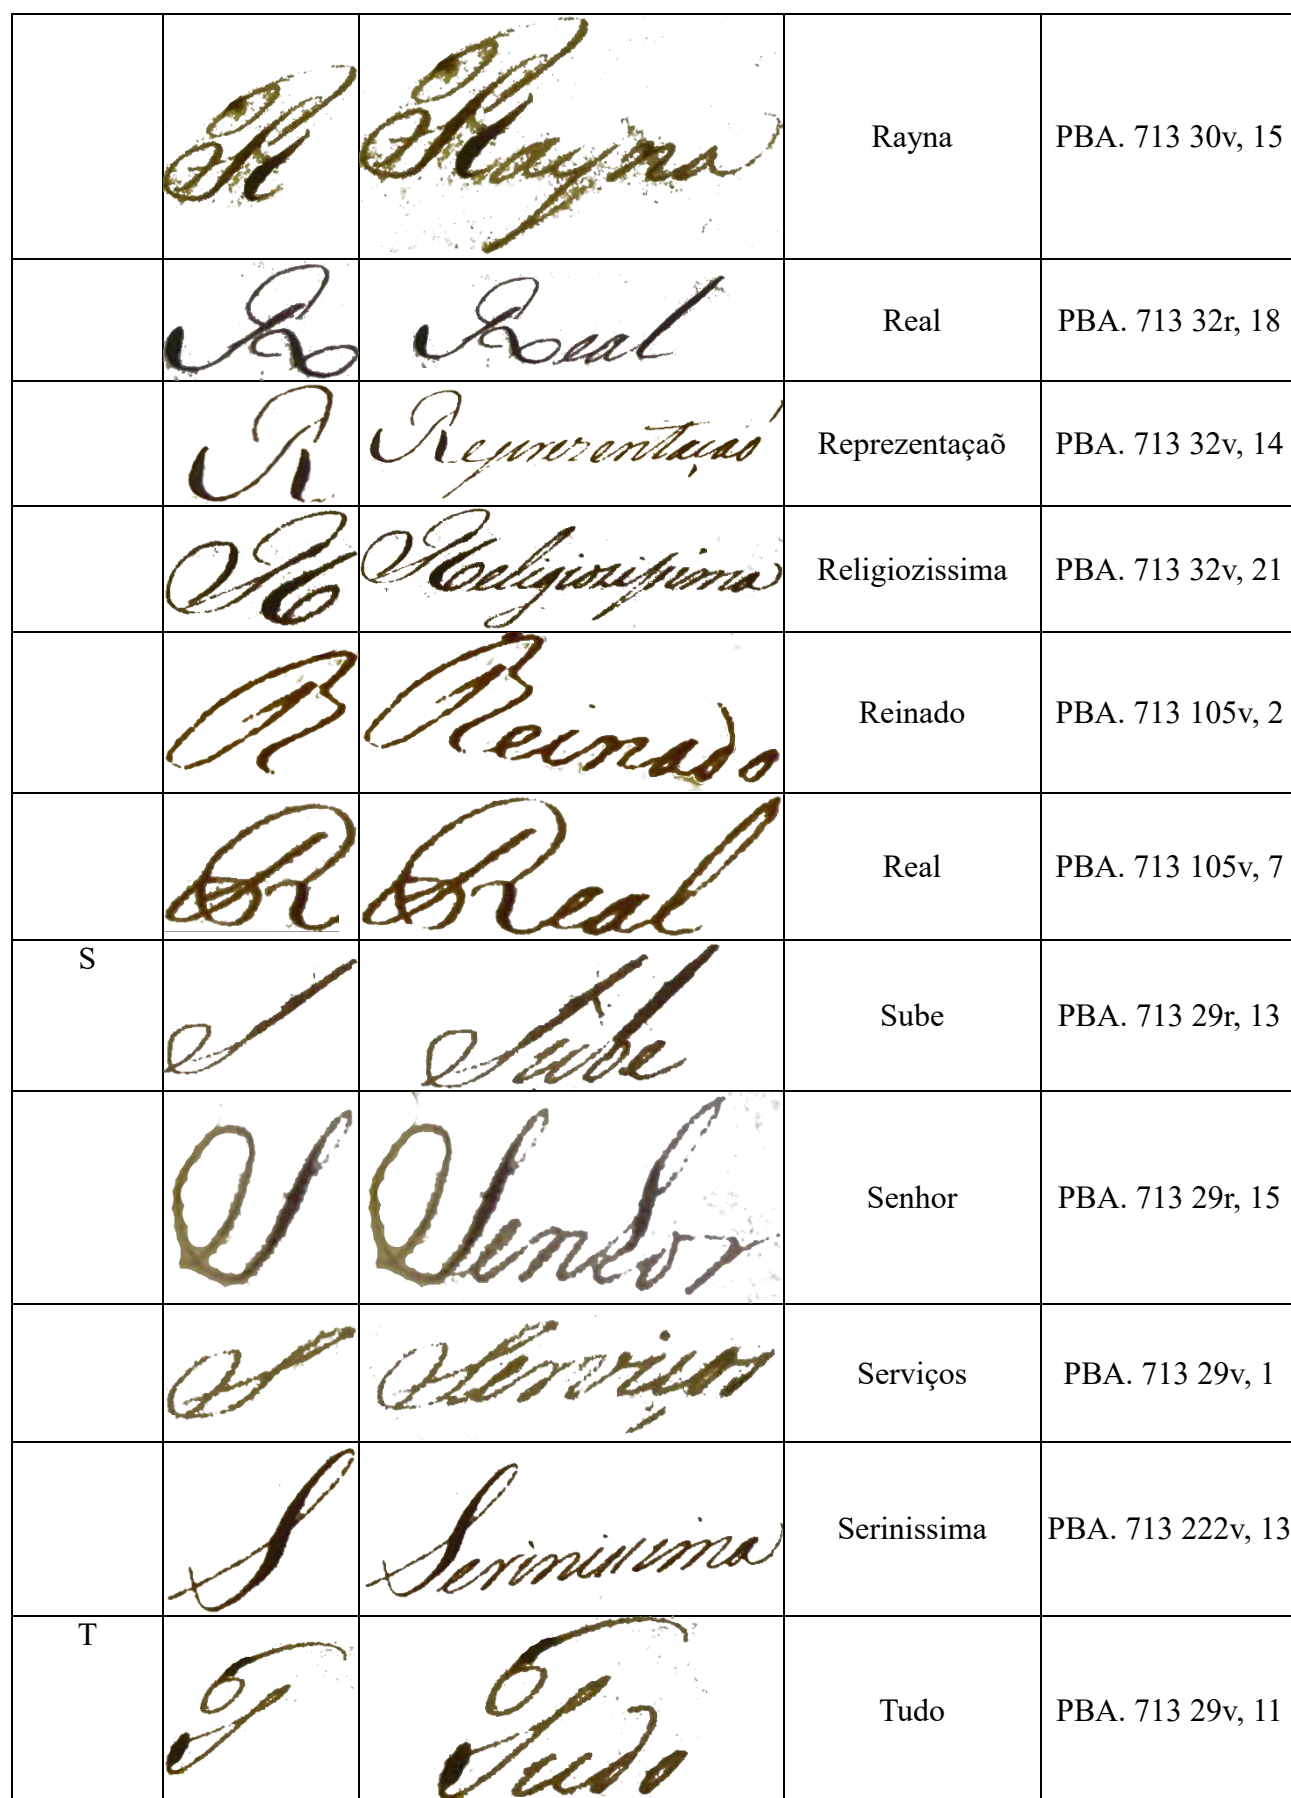 R Rayna Rayna PBA. 713 30v, 15
R Real Real PBA. 713 32r, 18
R Reprezentaçaõ Reprezentaçaõ PBA. 713 32v, 14
R Religiozissima Religiozissima PBA. 713 32v, 21
R Reinado Reinado PBA. 713 105v, 2
R Real Real PBA. 713 105v, 7
S S Sube Sube PBA. 713 29r, 13
S Senhor Senhor PBA. 713 29r, 15
S Serviços Serviços PBA. 713 29v, 1
S Serinissima Serinissima PBA. 713 222v, 13
T T Tudo Tudo PBA. 713 29v, 11